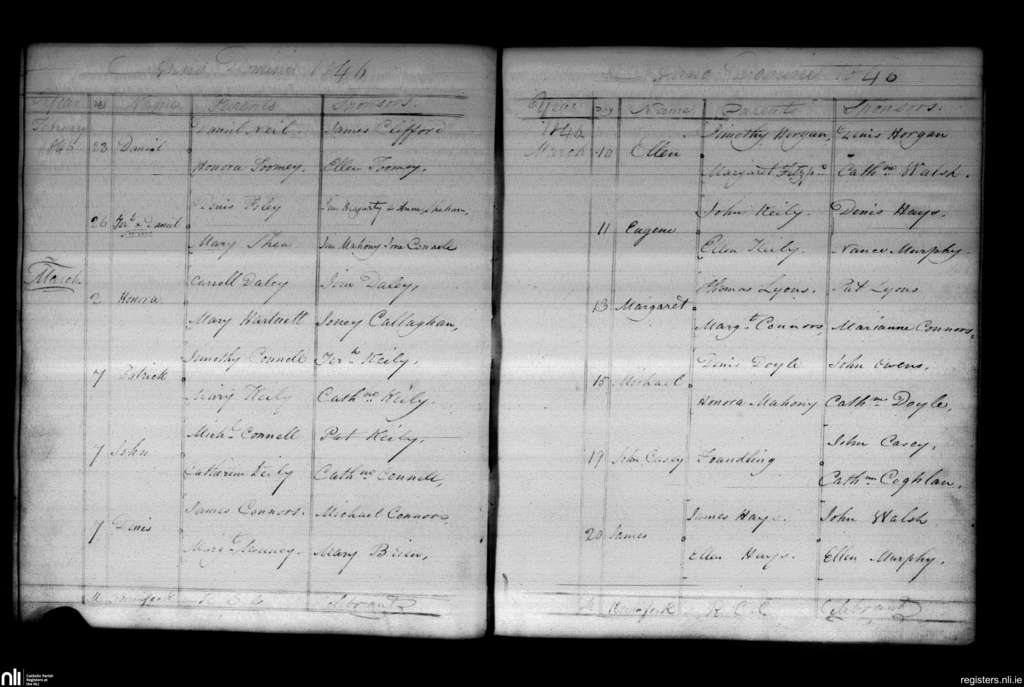 Anno Domini 1846
Year Day Name Parents Sponsors.
February Daniel Neil James Clifford
1846 23 Daniel
Honora Toomey. Ellen Toomey.
Denis Foley
26 Daniel
Mary Shea Jim Mahony Connole
March
Carroll Daley Jim Daley,
2 Honora
Mary Hartnett Joney Callaghan,
Timothy Connell Jerh Keily.
7 Patrick
Mary Keily Cathne Keily.
Michl Connell Pat Keily.
7 John
Catharine Keily Cathne Connell,
James Connors. Michael Connors,
7 Denis
Mary Brien,
Celebrant
Anno Domini 1846
Year Day Name Parents Sponsors.
1846 Timothy Horgan, Denis Horgan
March 10 Ellen
Margaret Cathne Walsh.
John Keily. Denis Hays.
11 Eugene
Ellen Keily. Nance Murphy.
Thomas Lyons. Pat Lyons
13 Margaret
Margt Connors, Marianne Connors,
Denis Doyle John Owens.
15 Michael
Honora Mahony Cathne Doyle,
John Casey,
19 John Casey Foundling
Cathne Coghlan.
James Hays. John Walsh
20 James
Ellen Hays. Ellen Murphy.
R.C.C. Celebrant
nli
Catholic Parish
Registers at
the NLI
registers.nli.ie